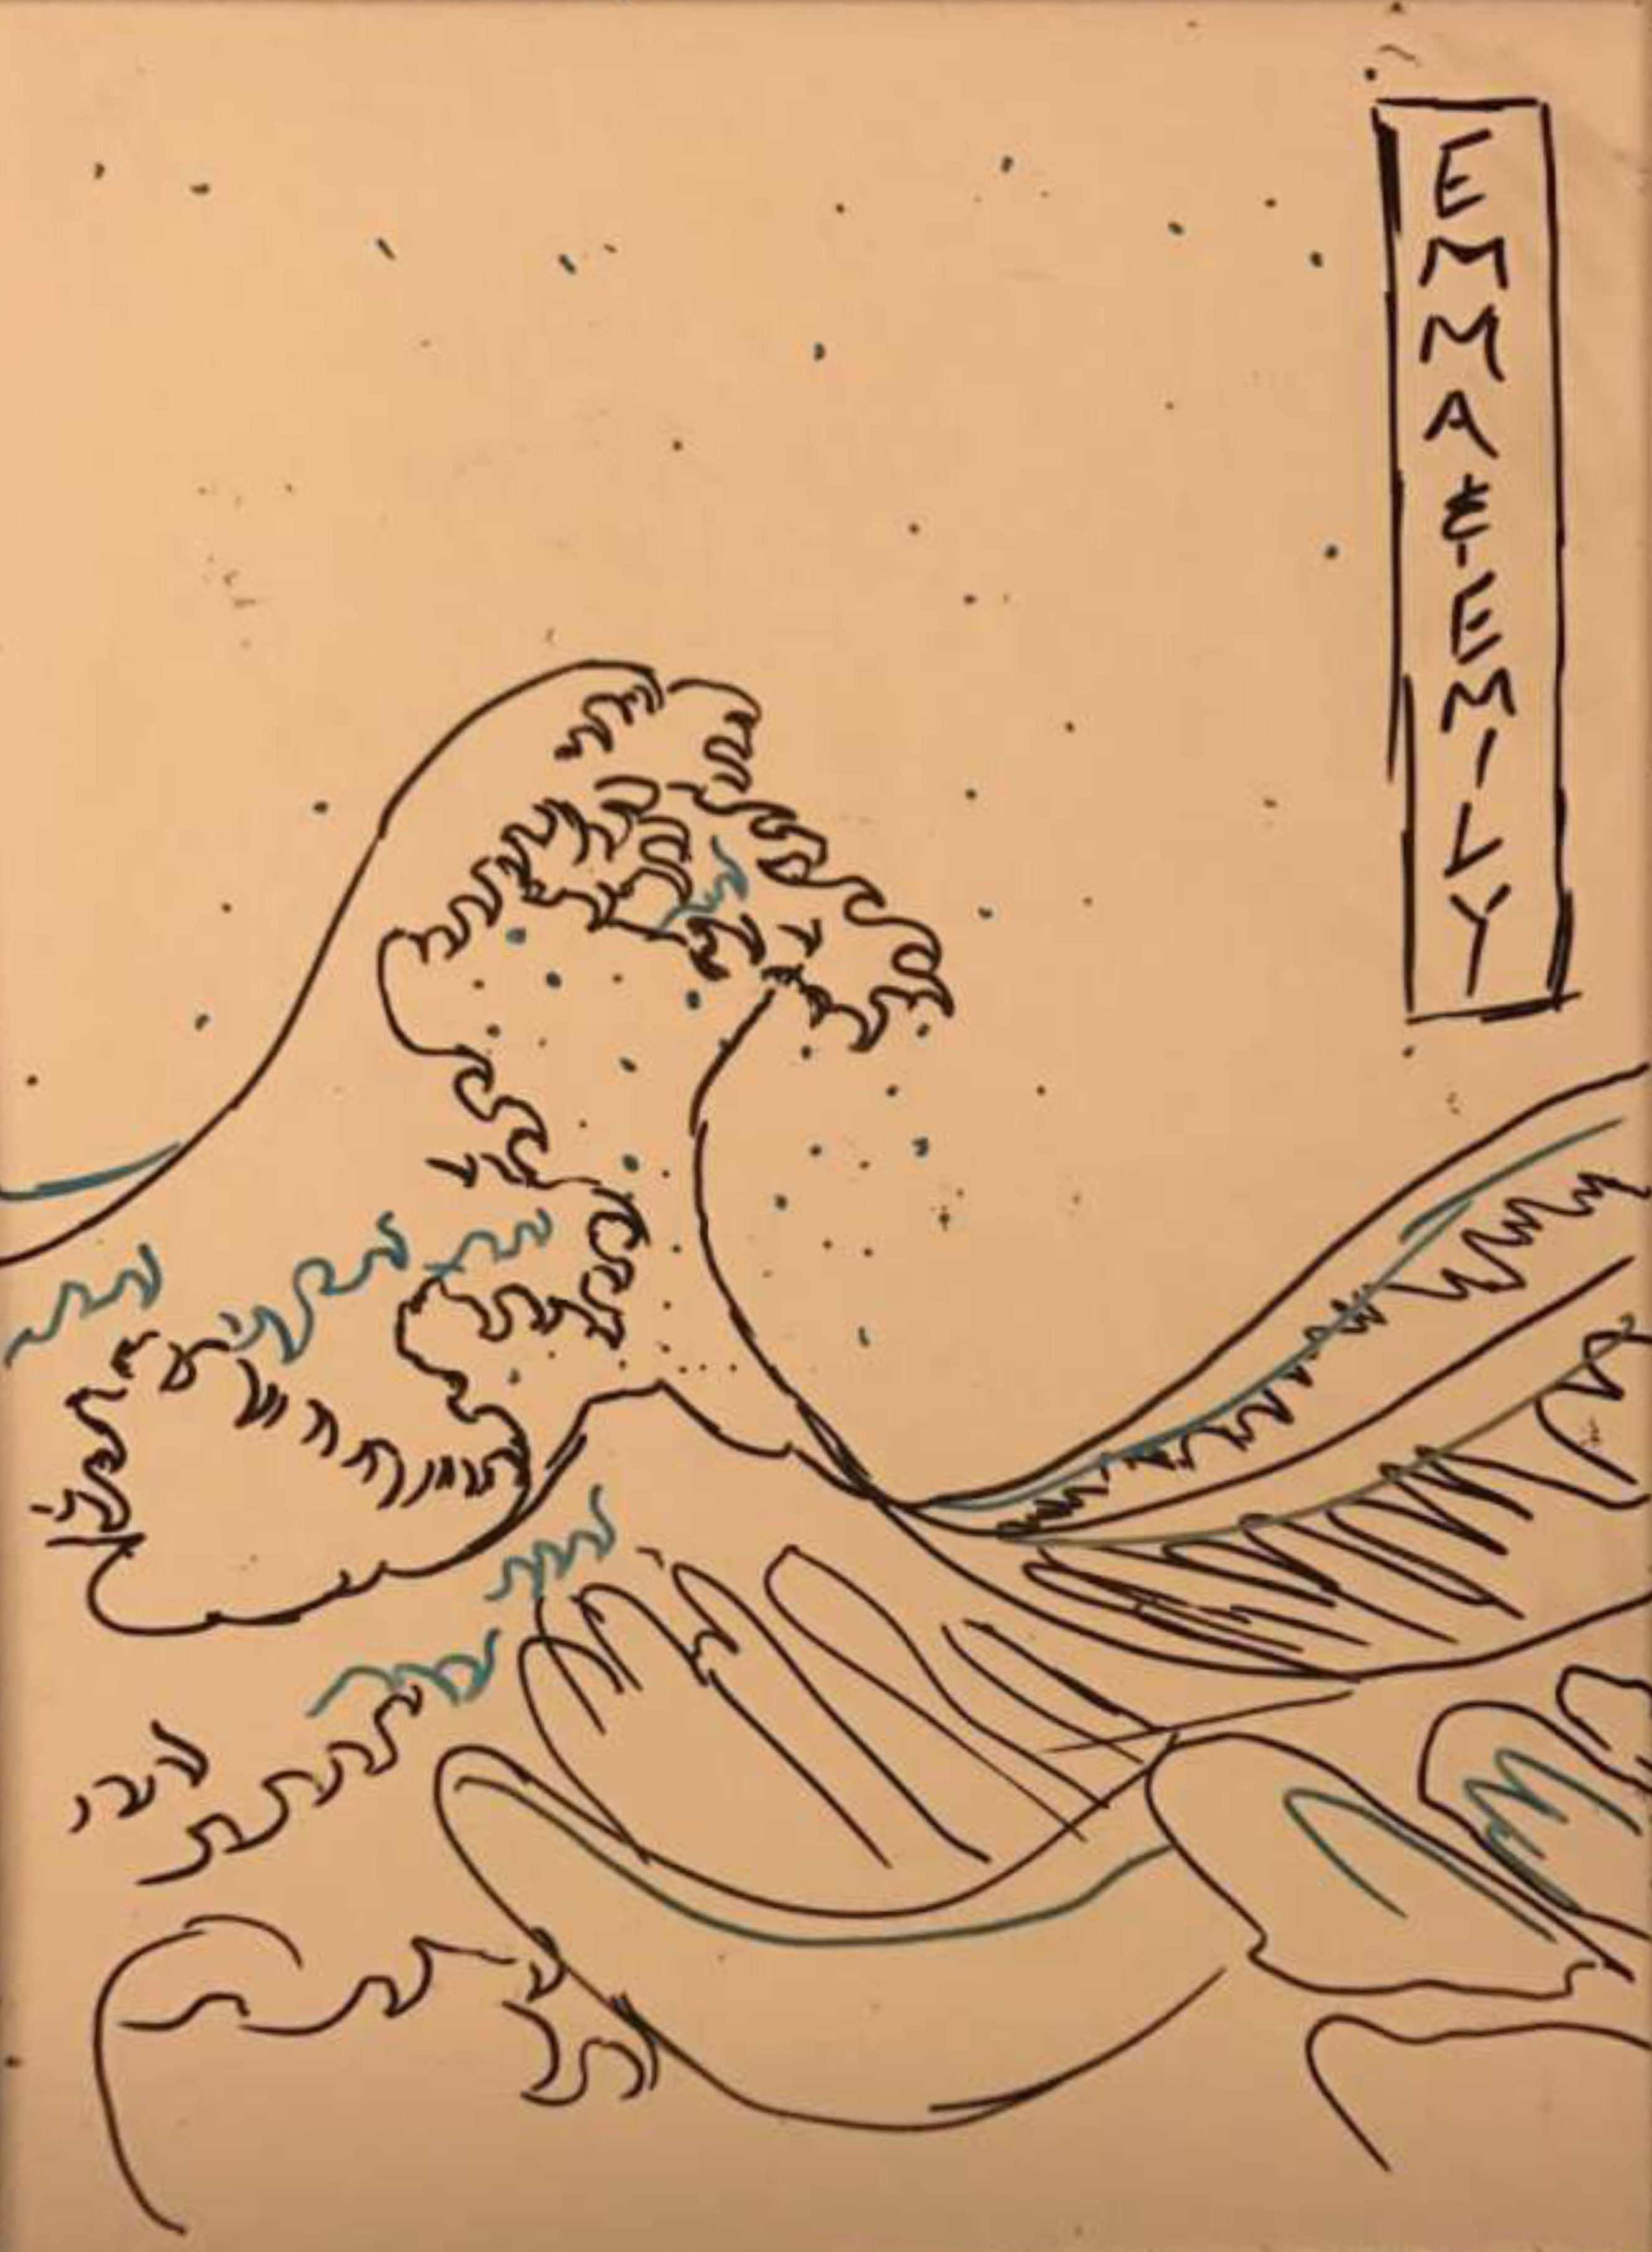 EMMA & EMILY